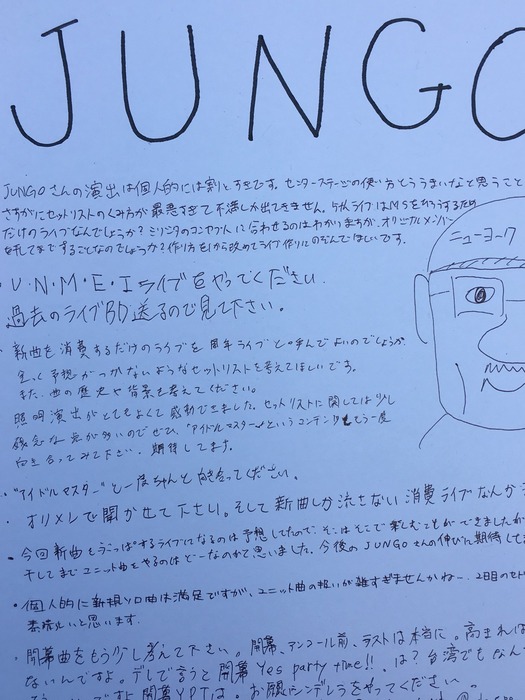 JUNGO
JUNGOさんの演出は個人的には割とすきです。センターステージの使い方とうまいなと思うこと
さすがにセットリストのくみ方が最悪すぎて不満しか出てきません。5thライブはM5をううするため
だけのライブなんでしょうか?ミリシタのコンセプトに合わせるのはわかりますが、オリジナルメンバー
を干してまですることなのでしょうか?作り方を1から改めてライブ作りにのぞんでほしいです。
ニューヨーク
・U・N・M・E・Iライブをやってください
過去のライブBD送るので見て下さい。
・新曲を消費するだけのライブを周年ライブと呼んでよいのでしょうか
全く予想がつかないようなセットリストを考えてほしいです。
また、曲の歴史や背景を考えてください。
照明演出がとてもよくて感動できました。セットリストに関しては少し
残念な点が多いのでぜひ、"アイドルマスター"というコンテンツともう一度
向き合ってみて下さい。期待してます。
・"アイドルマスター"と一度ちゃんと向き合ってください。
・オリメンで聞かせて下さい。そして新曲しか流さない消費ライブなんか
・今回新曲をうたっぱするライブになるのは予想してたので、そこはそこで楽しむことができましたが
干してまでユニット曲をやるのはどーなのかて思いました。今後のJUNGOさんの伸びに期待して
・個人的に新規ソロ曲は満足ですが、ユニット曲の扱いが雑すぎませんかね…2日目のセト
素晴しいと思います。
・開幕曲をもう少し考えて下さい。開幕、アンコール前、ラストは本当に。高まれば
ないんですよ。デレで言うと開幕Yes party time!!は?台湾でもなんで
ですよ開幕YPTは。お願いシンデレラをやってください